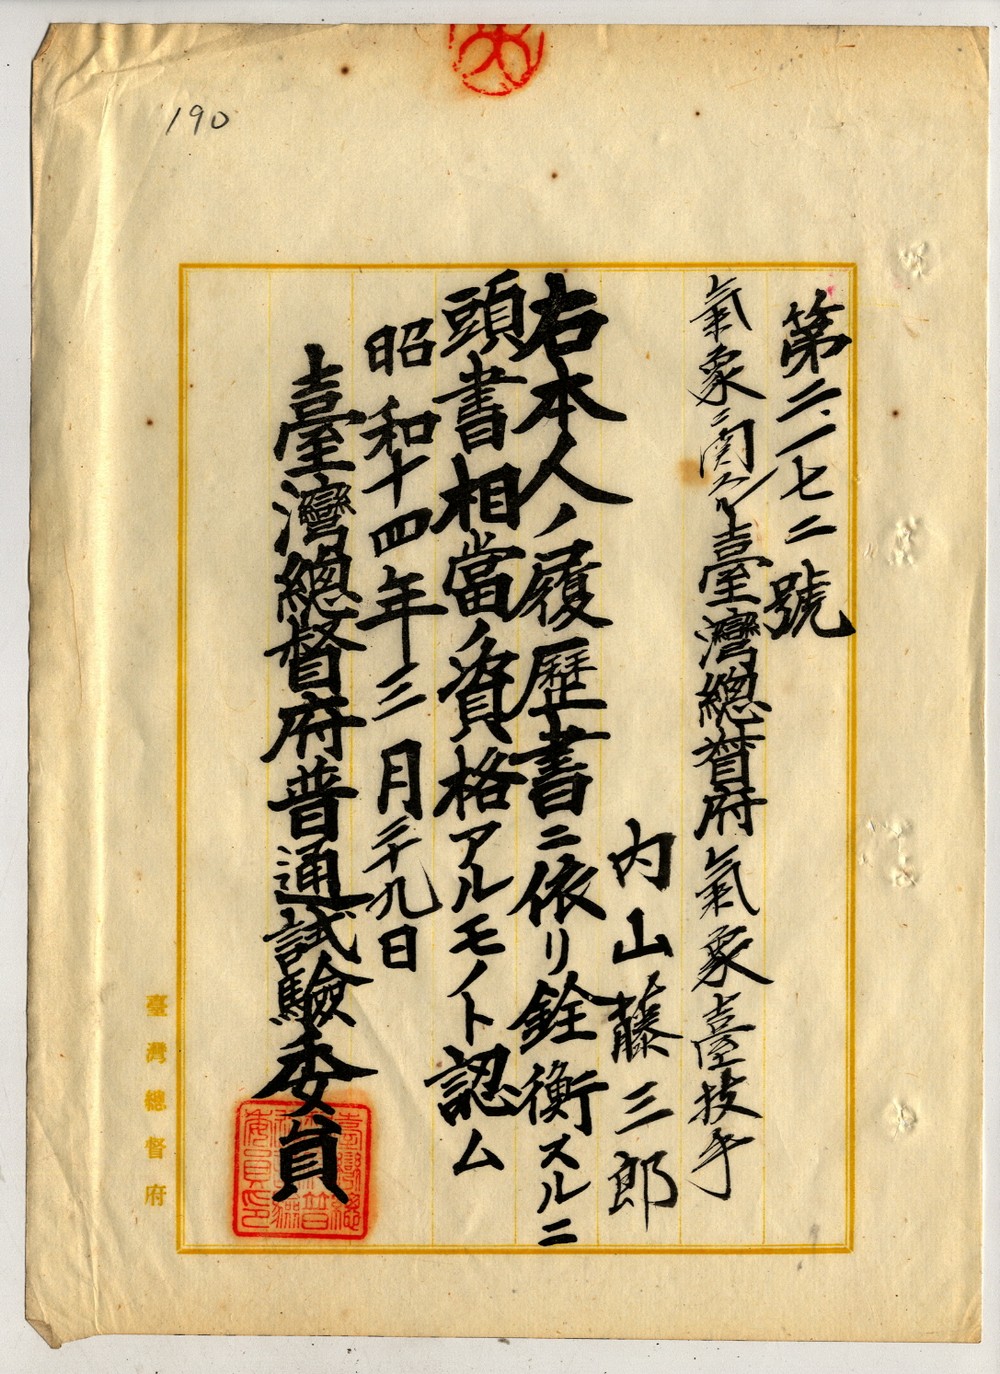 190
第二一七二號
氣象ニ関スル臺灣總督府氣象臺技手
内山藤三郎
右本人ノ履歷書ニ依リ銓衡スルニ
頭書相當ノ資格アルモノト認ム
昭和十四年三月二十九日
臺灣總督府普通試驗委員
臺灣總督府